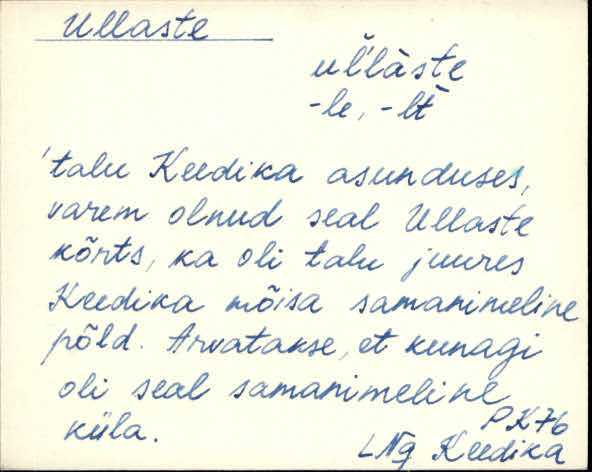 Ullaste
ul̆'làste
-le, -lt
'talu Keedika asunduses,
varem olnud seal Ullaste
kõrts, ka oli talu juures
Keedika mõisa samanimeline
põld. Arvatakse, et kunagi
oli seal samanimeline
küla.
PK76
LNg Keedika